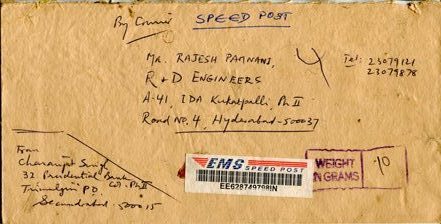 By Courier
SPEED POST
Mr. RAJESH PAMNANI,
R & D ENGINEERS
A-41, IDA Kukatpally, Ph II
Road No. 4, Hyderabad-500037
Tel: 23079121
23079878
From
Charanjit Singh
32 Presidential Bank
Col. Ph II
Trimulgiri P.O.
Secunderabad-500015
EMS SPEED POST
EE628749798IN
WEIGHT
IN GRAMS
10